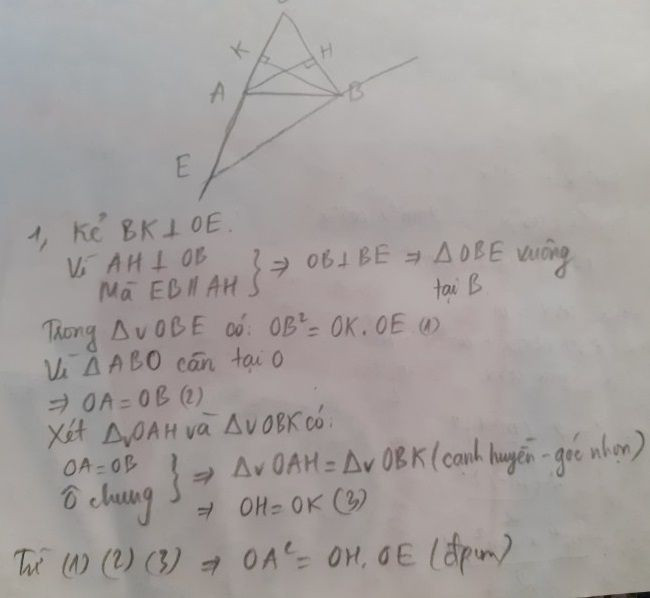 K
H
A
B
E
1, Kẻ BK ⊥ OE.
Vì AH ⊥ OB
Mà EB // AH } ⇒ OB ⊥ BE ⇒ Δ OBE vuông
tại B
Trong Δv OBE có: OB² = OK. OE (1)
Vì Δ ABO cân tại O
⇒ OA = OB (2)
Xét Δv OAH và Δv OBK có:
OA = OB
Ô chung } ⇒ Δv OAH = Δv OBK (cạnh huyền - góc nhọn)
⇒ OH = OK (3)
Từ (1) (2) (3) ⇒ OA² = OH. OE (đpcm)